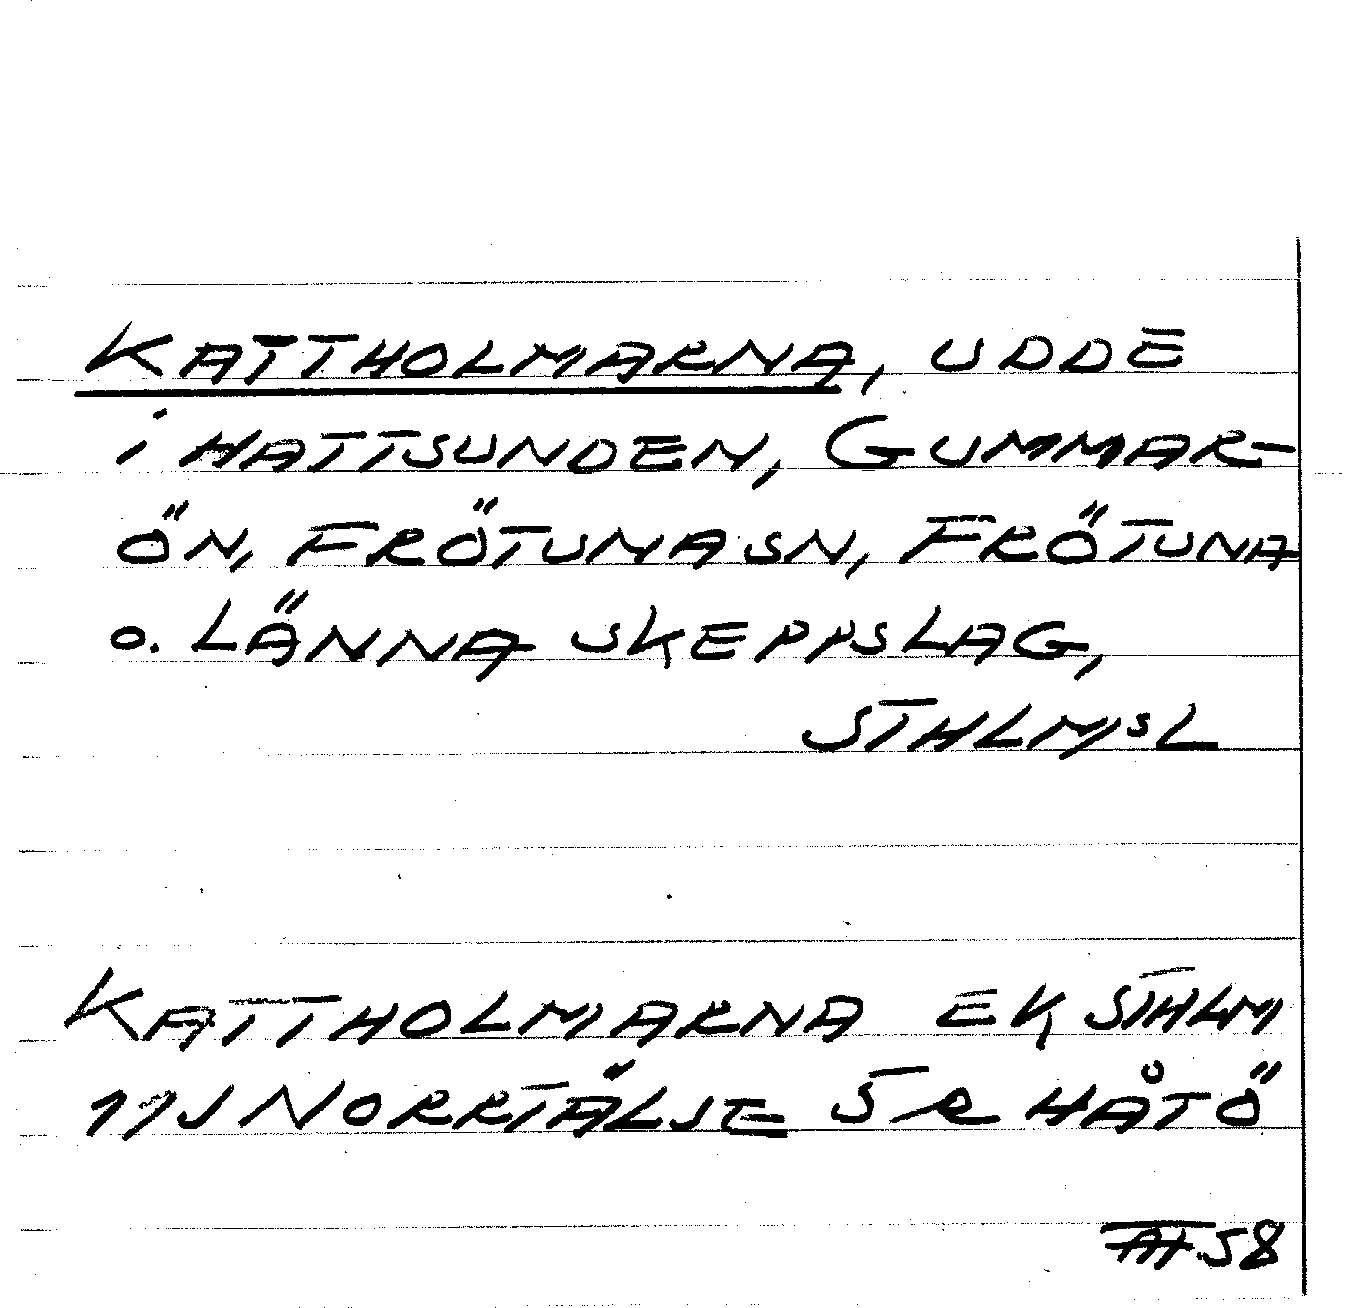 KATTHOLMARNA, UDDE
i HATTSUNDEN, GUMMAR-
ÖN, FRÖTUNA SN, FRÖTUNA
o. LÄNNA SKEPPSLAG,
STHLMSL
KATTHOLMARNA EK STHLM
11J NORRTÄLJE SR HÅTÖ
58